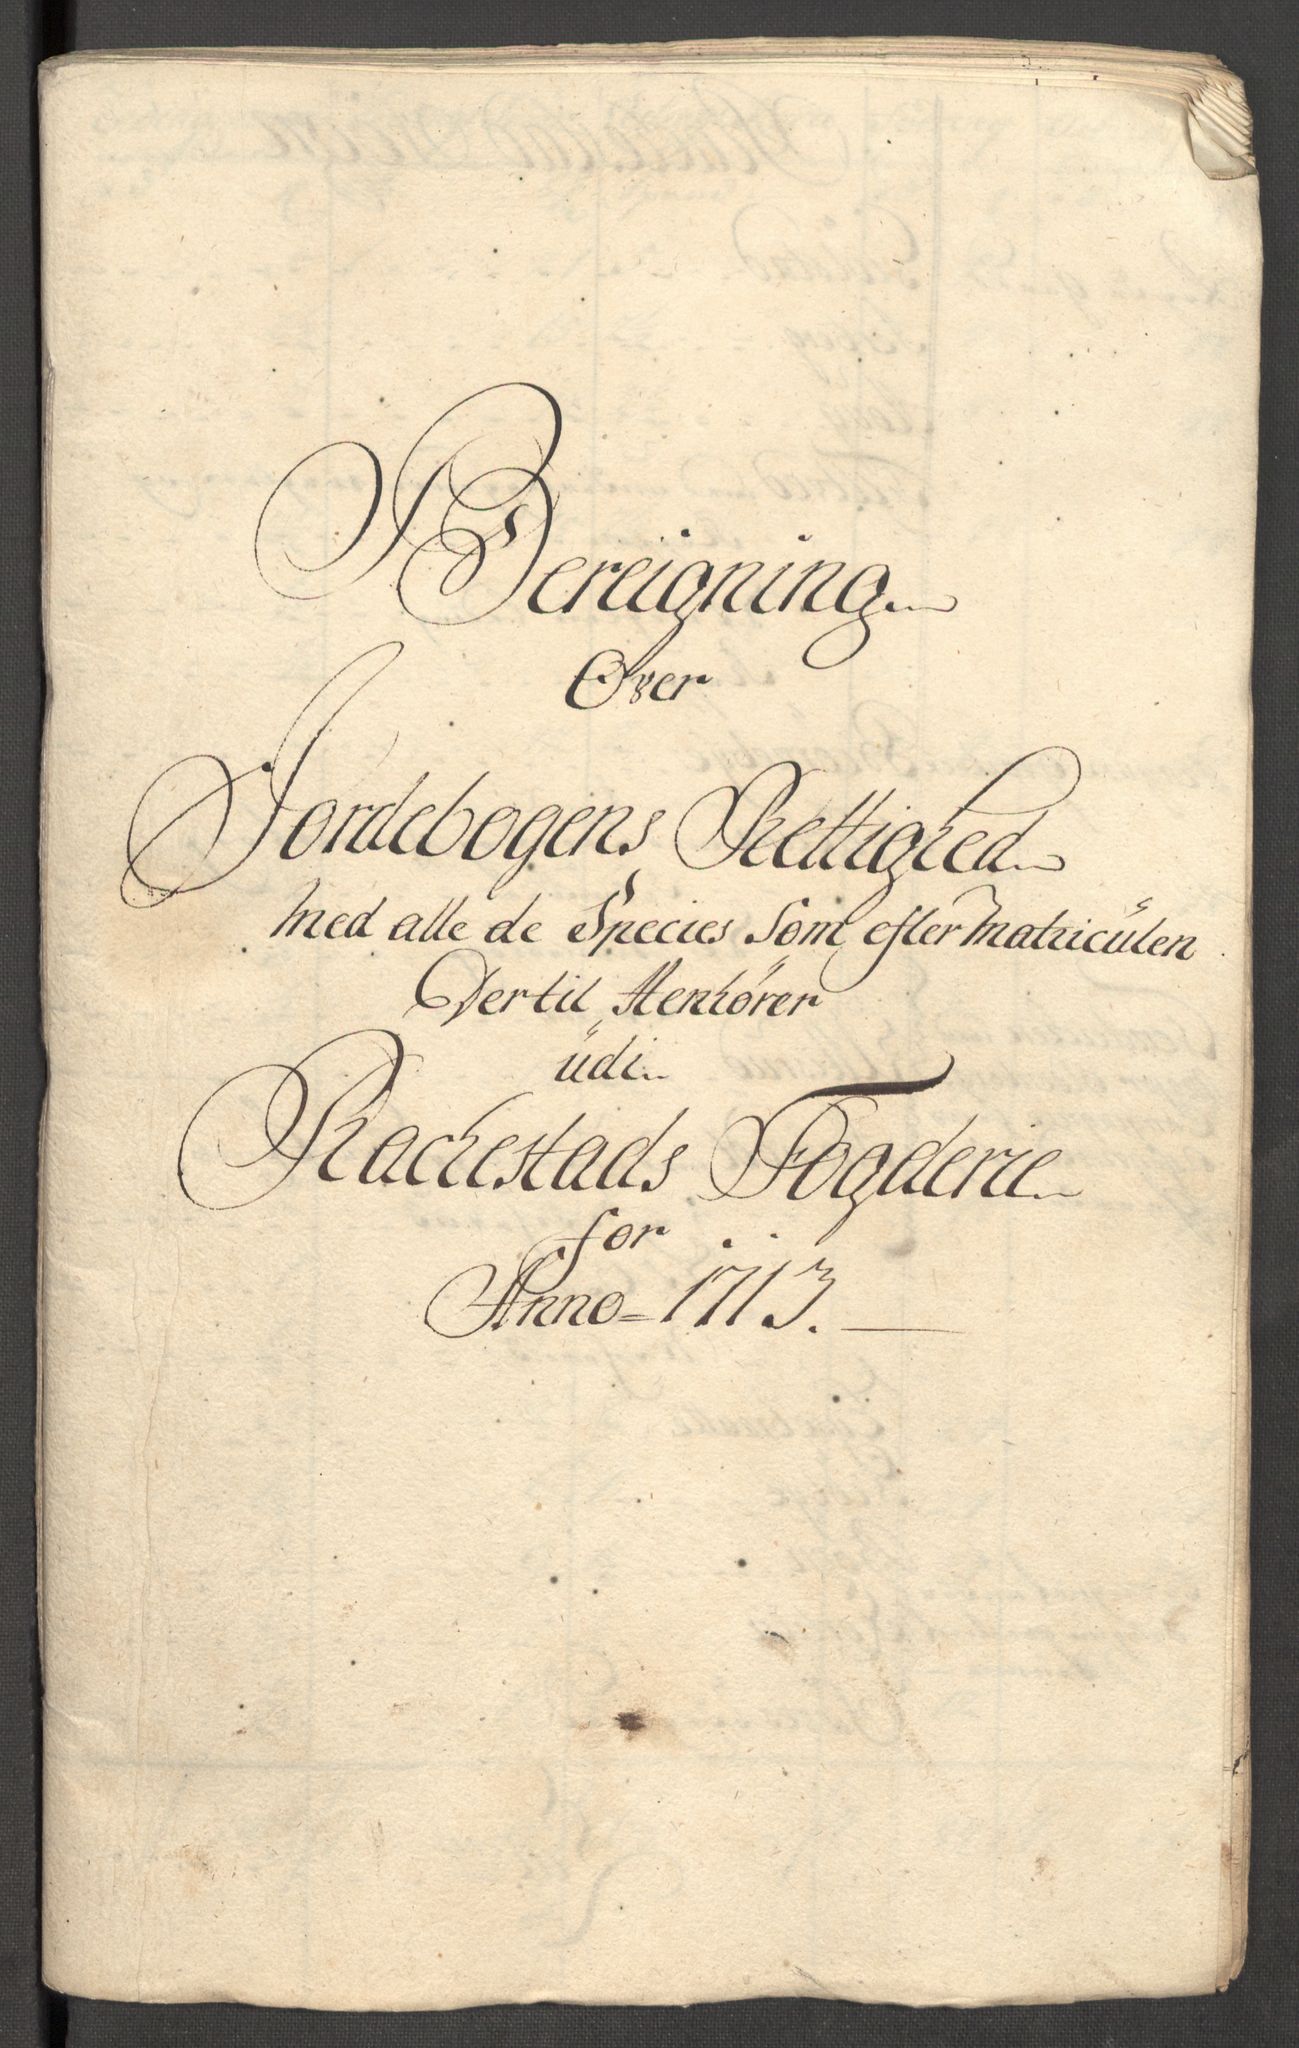 Bereigning
Over
Jordebogens Rettighed
med alle de Species Som efter Matricülen
Dertil Henhører
üdi
Rachestads Fogderie
for
Anno 1713.